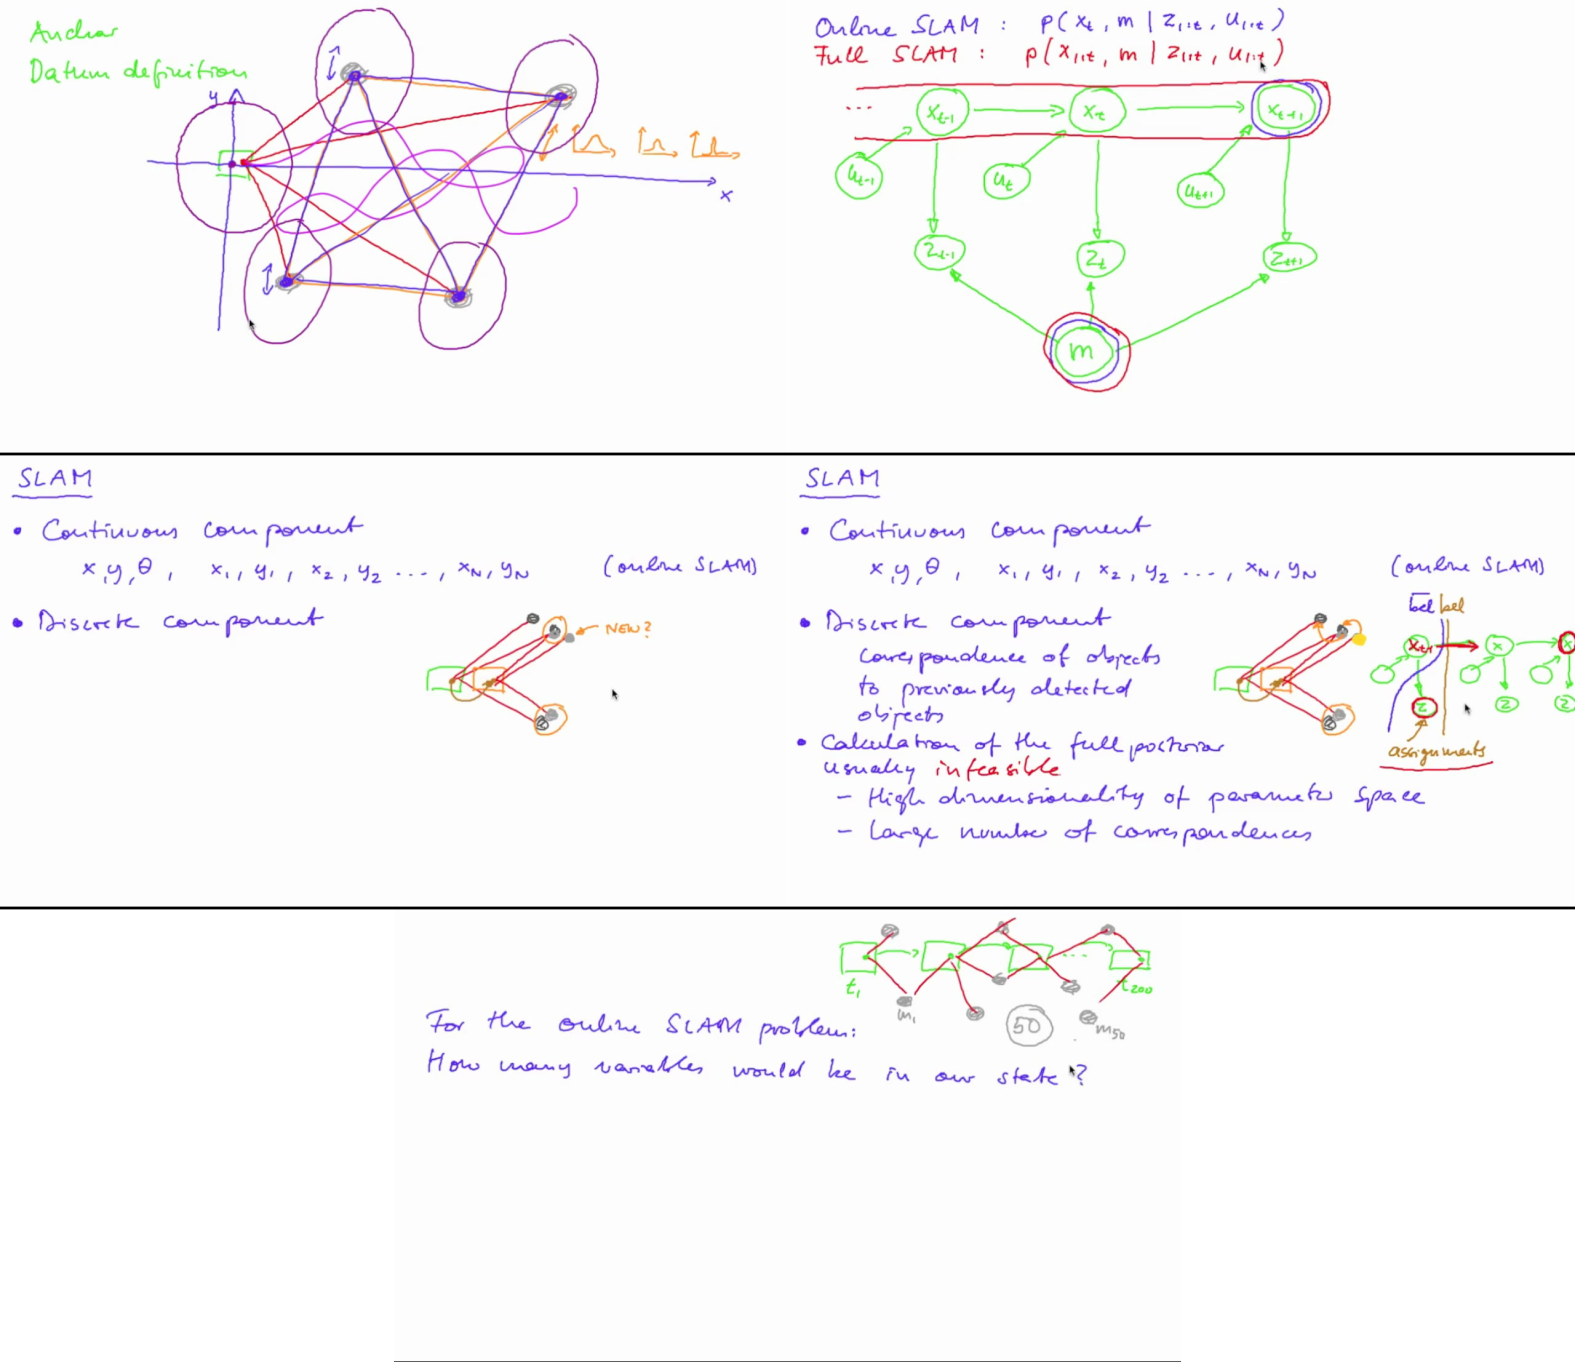 Anchor
Datum definition
y
x
Online SLAM : p(x_t, m | z_1:t, u_1:t)
Full SLAM : p(x_1:t, m | z_1:t, u_1:t)
... x_t-1 x_t x_t+1
u_t-1 u_t u_t+1
z_t-1 z_t z_t+1
m
SLAM
• Continuous component
x, y, θ, x_1, y_1, x_2, y_2 ..., x_N, y_N (online SLAM)
• Discrete component
NEW?
SLAM
• Continuous component
x, y, θ, x_1, y_1, x_2, y_2 ..., x_N, y_N (online SLAM)
• Discrete component
correspondence of objects
to previously detected
objects
bel bel
x_t-1 x x
z z z
assignments
• Calculation of the full posterior
usually infeasible
- High dimensionality of parameter space
- Large number of correspondences
... 
t_1 t_200
m_1 50 m_50
For the online SLAM problem:
How many variables would be in our state?